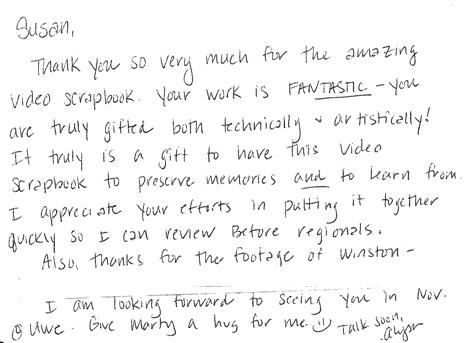 Susan,
Thank you so very much for the amazing
video scrapbook. Your work is FANTASTIC - you
are truly gifted both technically & artistically!
It truly is a gift to have this video
scrapbook to preserve memories and to learn from.
I appreciate your efforts in putting it together
quickly so I can review before regionals.
Also, thanks for the footage of Winston -
I am looking forward to seeing you in Nov.
@ Uwe. Give Marty a hug for me. Talk soon,